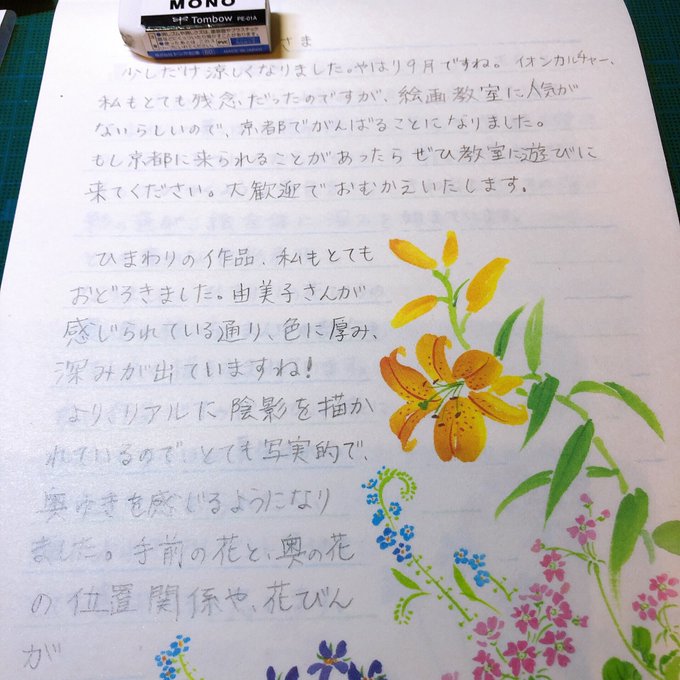 MONO
Tombow PE-01A
さま
少しだけ涼しくなりました。やはり9月ですね。イオンカルチャー、
私もとても残念だったのですが、絵画教室に人気が
ないらしいので、京都でがんばることになりました。
もし京都に来られることがあったら ぜひ教室に遊びに
来てください。大歓迎で おむかえいたします。
ひまわりの作品、私もとても
おどろきました。由美子さんが
感じられている通り、色に厚み、
深みが出ていますね!
よりリアルに陰影を描か
れているので、とても写実的で、
奥ゆきを感じるようになり
ました。手前の花と、奥の花
の位置関係や、花びん
が